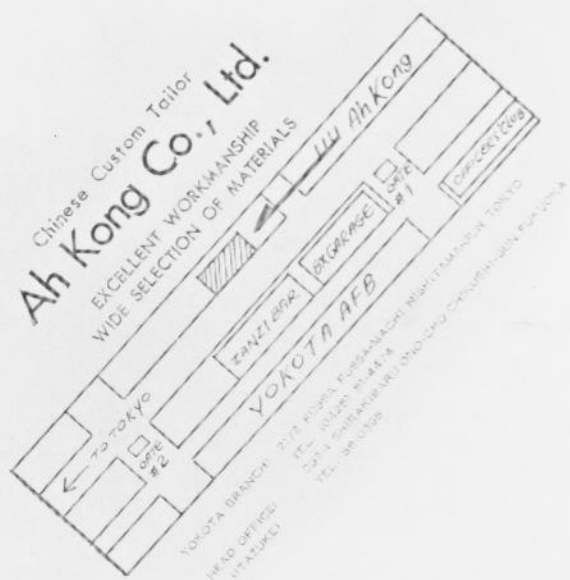 Chinese Custom Tailor
Ah Kong Co., Ltd.
EXCELLENT WORKMANSHIP
WIDE SELECTION OF MATERIALS
Ah Kong
OFFICERS CLUB
GATE #1
BX GARAGE
ZANZI BAR
YOKOTA AFB
← TO TOKYO
GATE #2
YOKOTA BRANCH: FUSSA-MACHI NISHITAMA-GUN TOKYO
TEL.
HEAD OFFICE: SHIRAKIBARU ONO-CHO CHIKUSHI-GUN FUKUOKA
(ITAZUKE) TEL.